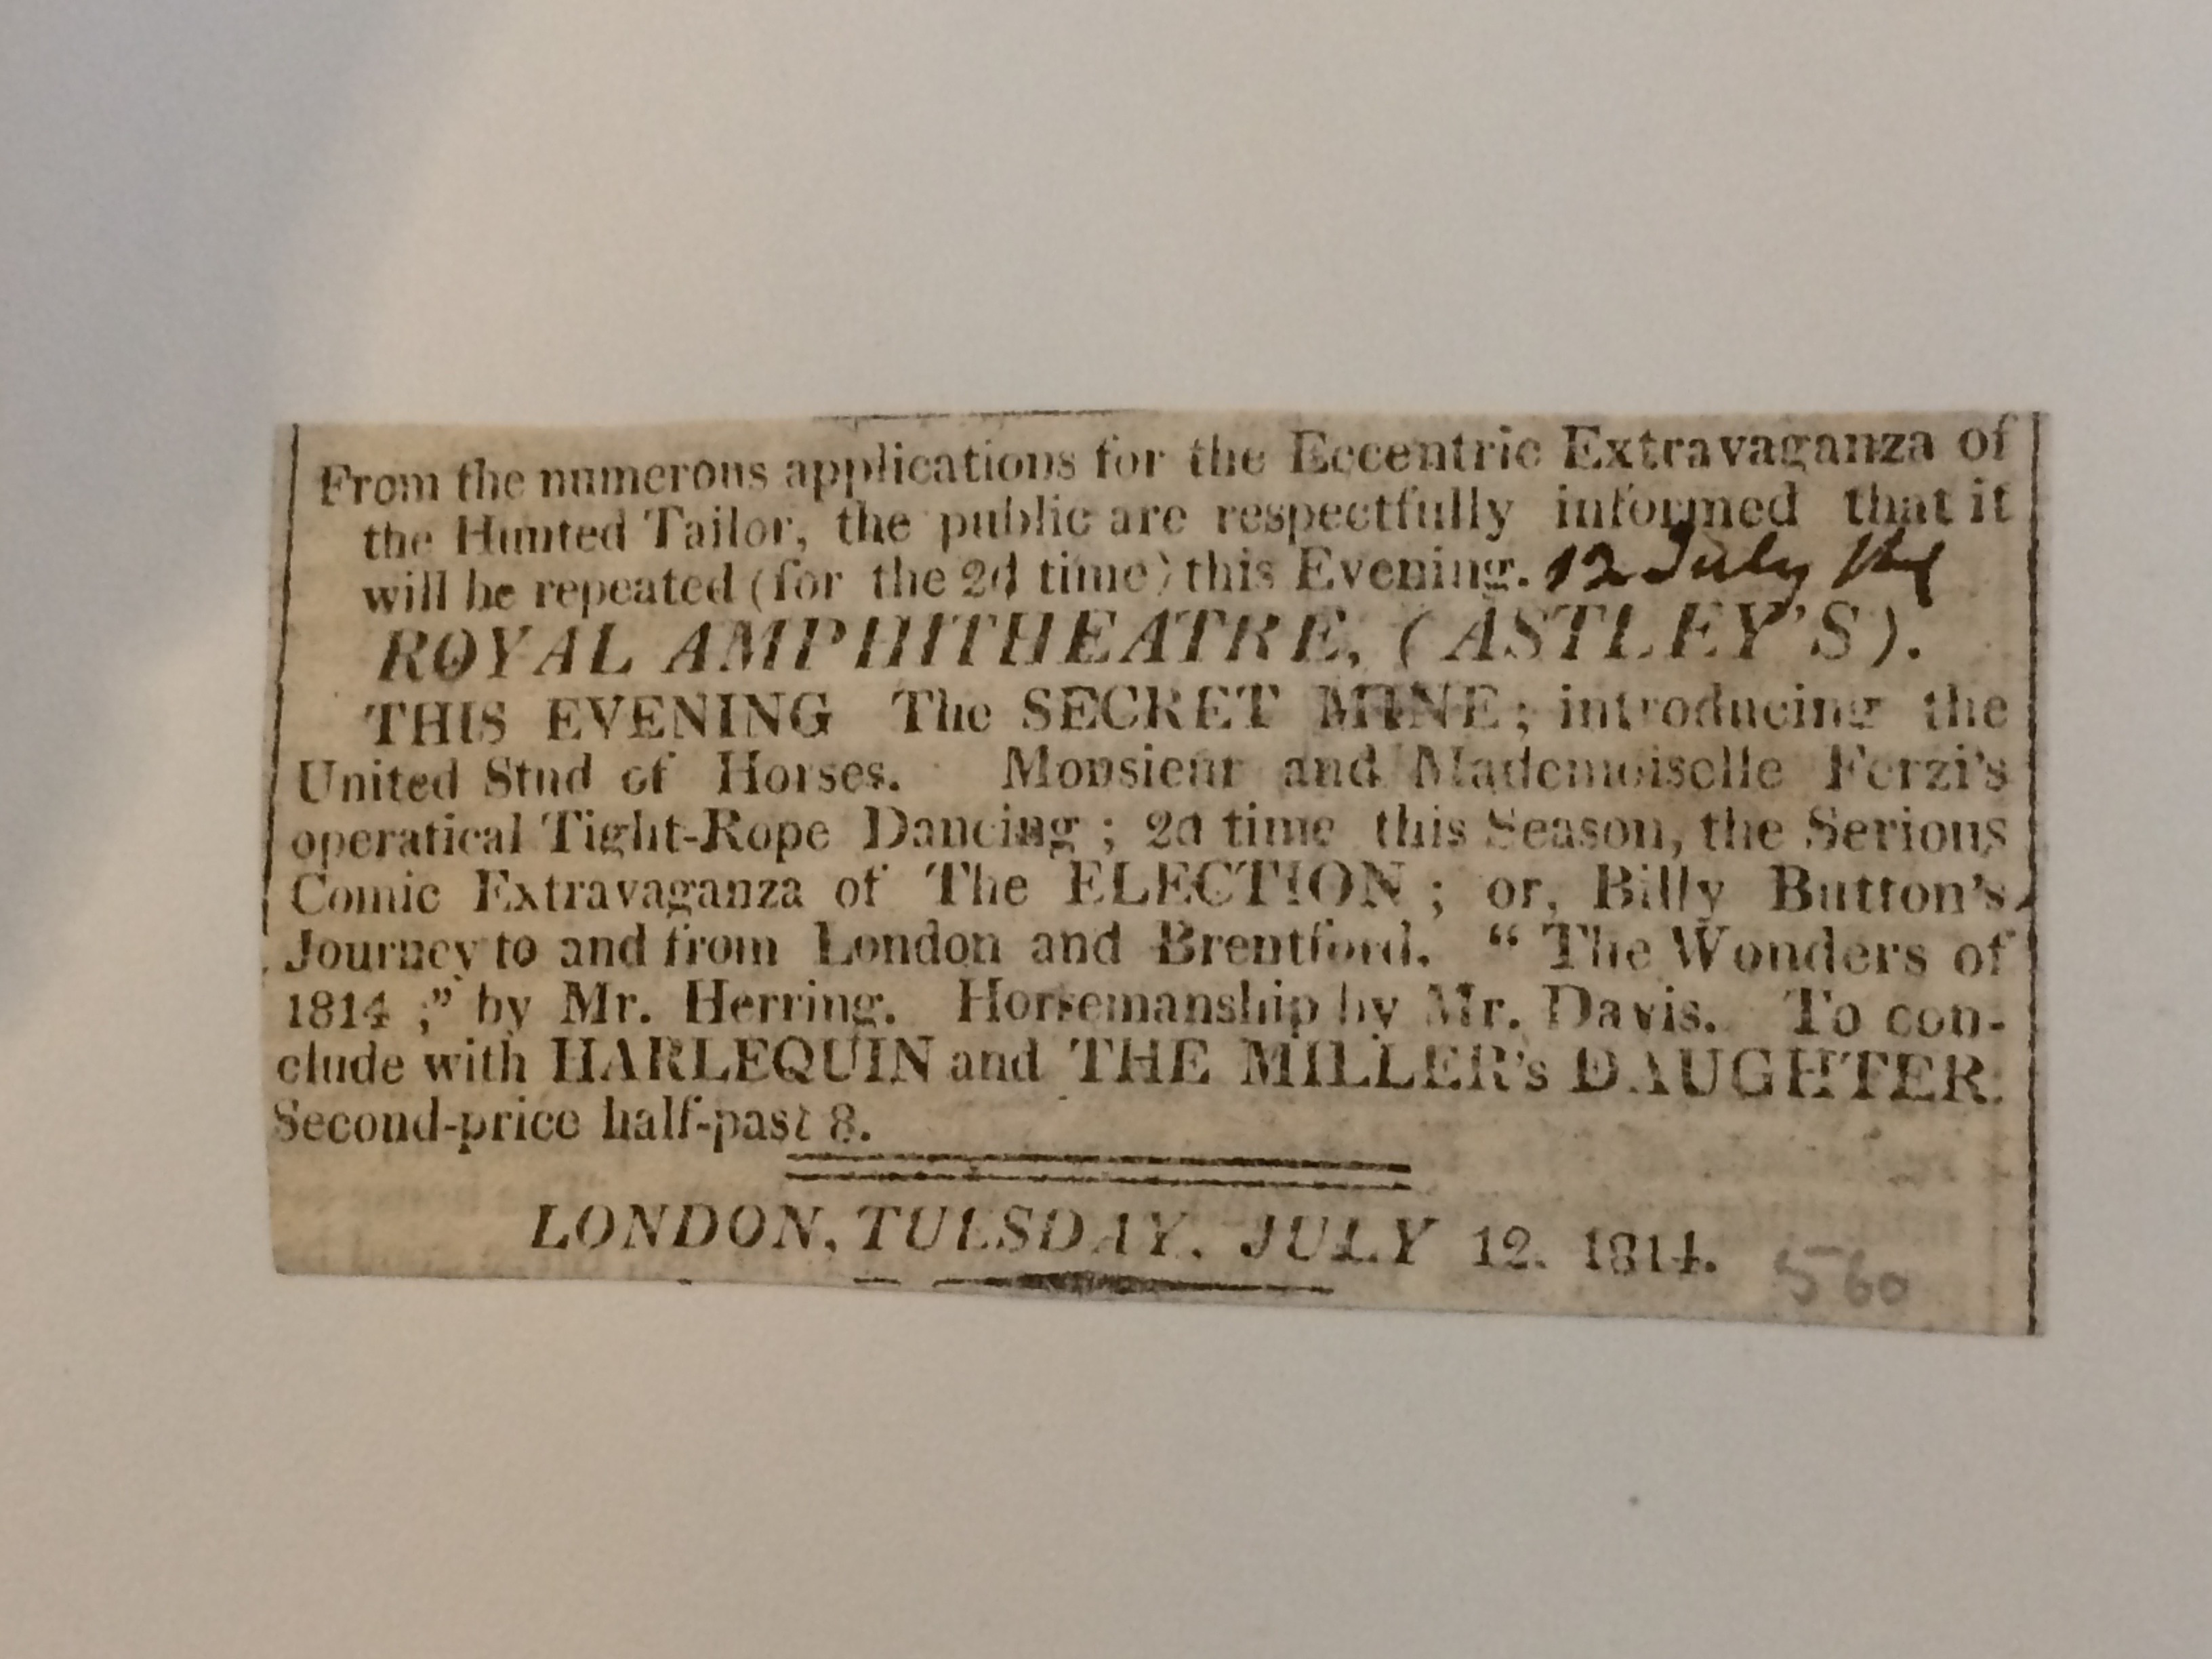 From the numerous applications for the Eccentric Extravaganza of
the Hunted Tailor, the public are respectfully informed that it
will be repeated (for the 2d time) this Evening. 12 July 1814
ROYAL AMPHITHEATRE, (ASTLEY'S).
THIS EVENING The SECRET MINE; introducing the
United Stud of Horses. Monsieur and Mademoiselle Ferzi's
operatical Tight-Rope Dancing; 2d time this Season, the Serious
Comic Extravaganza of The ELECTION; or, Billy Button's
Journey to and from London and Brentford. "The Wonders of
1814;" by Mr. Herring. Horsemanship by Mr. Davis. To con-
clude with HARLEQUIN and THE MILLER's DAUGHTER.
Second-price half-past 8.
LONDON, TUESDAY, JULY 12, 1814.
560